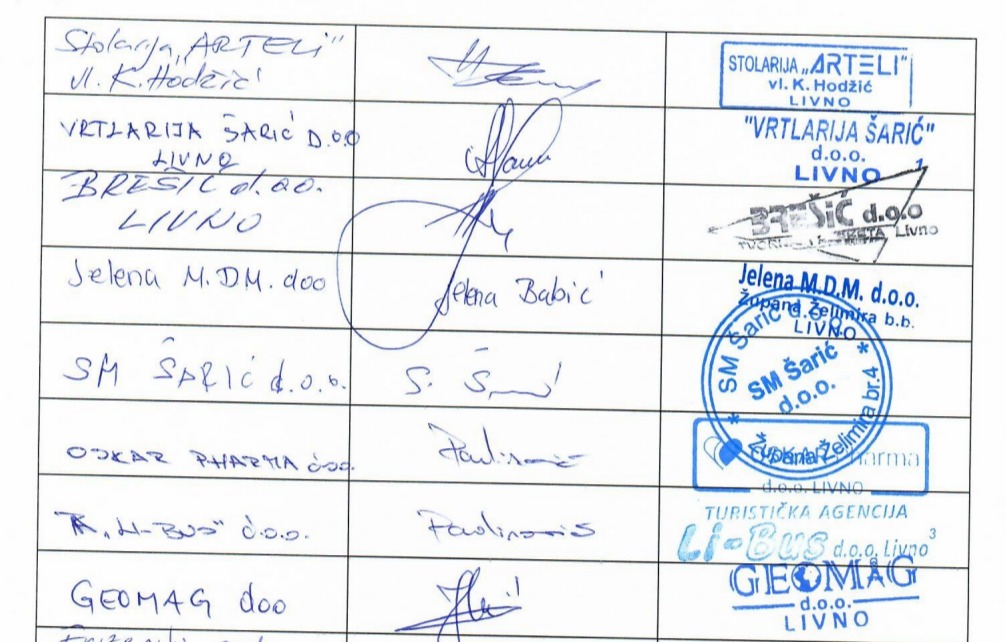 Stolarija „ARTELI"
vl. K. Hodžić
STOLARIJA „ARTELI"
vl. K. Hodžić
LIVNO
VRTLARIJA ŠARIĆ D.O.O
LIVNO
"VRTLARIJA ŠARIĆ"
d.o.o.
LIVNO
1
BREŠIĆ d.o.o.
LIVNO
BREŠIĆ d.o.o
Livno
Jelena M.DM. doo
Jelena Babić
Jelena M.D.M. d.o.o.
Župana Želimira b.b.
LIVNO
SM ŠARIĆ d.o.o.
S.
SM Šarić d.o.o.
SM Šarić
d.o.o.
Župana Želimira br.4
OSKAR PHARMA doo.
d.o.o. LIVNO
„LI-BUS" d.o.o.
TURISTIČKA AGENCIJA
Li-Bus d.o.o. Livno
3
GEOMAG doo
GEOMAG
d.o.o.
LIVNO